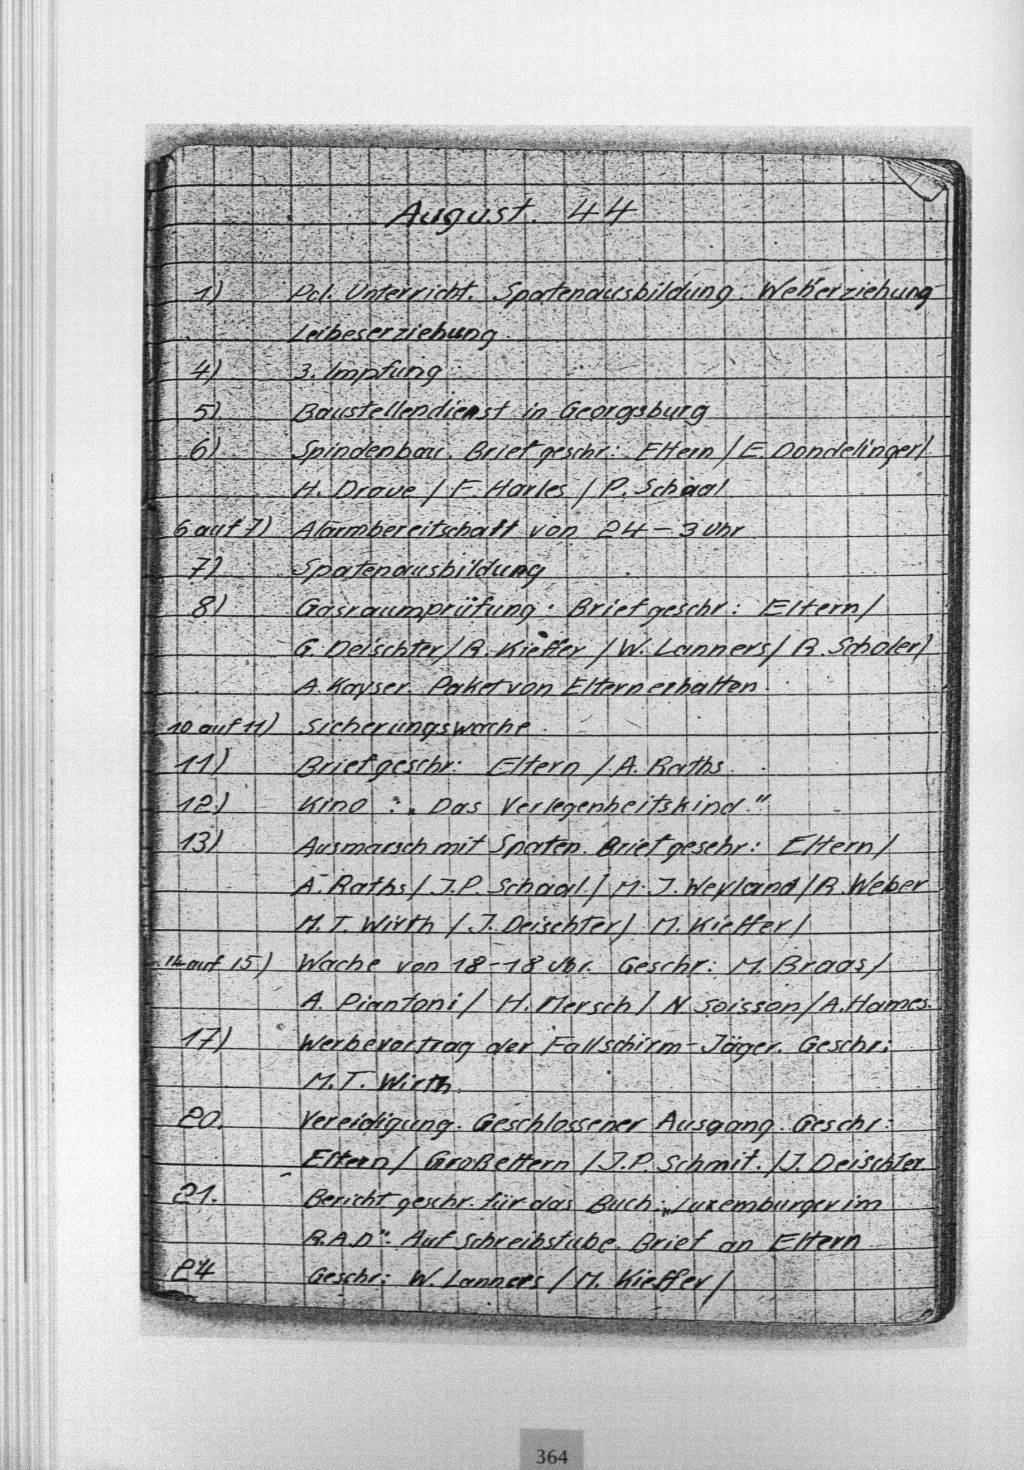 August. 44
1) Pol. Unterricht. Spatenausbildung. Weherziehung
Leibeserziehung.
4) 3. Impfung
5) Baustellendienst in Georgsburg
6) Spindenbau. Brief geschr: Eltern / E. Dondelinger/
H. Drave / F. Harles / P. Schaal
6 auf 7) Alarmbereitschaft von 24 - 3 Uhr
7) Spatenausbildung
8) Gasraumprüfung. Brief geschr: Eltern/
G. Deischter/ R. Kieffer / W. Lanners/ R. Scholer/
A. Kayser. Paket von Eltern erhalten.
10 auf 11) Sicherungswache
11) Brief geschr: Eltern / A. Raths.
12) Kino : „Das Verlegenheitskind."
13) Ausmarsch mit Spaten. Brief geschr: Eltern/
A. Raths/ J.P. Schaal / M. J. Weyland/ R. Weber
M. T. Wirth / J. Deischter/ M. Kieffer/
14 auf 15) Wache von 18-18 Uhr. Geschr: M. Braas/
A. Piantoni/ H. Mersch/ N. Soisson/ A. Hames.
17) Werbevortrag der Fallschirm-Jäger. Geschr:
M. T. Wirth.
20. Vereidigung. Geschlossener Ausgang. Geschr:
Eltern/ Großeltern / J.P. Schmit. / J. Deischter
21. Bericht geschr. für das Buch: „Luxemburger im
R.A.D". Auf Schreibstube. Brief an Eltern
24 Geschr: W. Lanners / M. Kieffer/
364